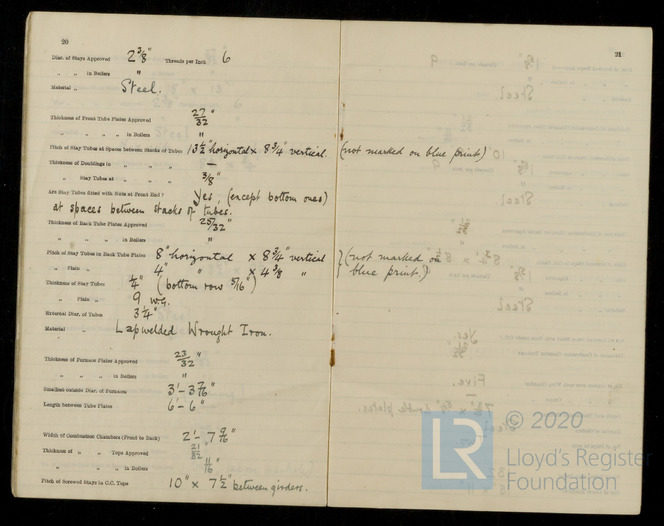 20
Diar. of Stays Approved 2 3/8" Threads per Inch 6
„ „ in Boilers "
Material „ Steel.
Thickness of Front Tube Plates Approved 27/32"
„ „ „ „ in Boilers "
Pitch of Stay Tubes at Spaces between Stacks of Tubes 13 1/2" horizontal x 8 3/4" vertical.
Thickness of Doublings in „ „ „ —
„ Stay Tubes at „ „ „ 3/8"
Are Stay Tubes fitted with Nuts at Front End? Yes, (except bottom ones)
at spaces between stacks of tubes.
Thickness of Back Tube Plates Approved 25/32"
„ „ „ in Boilers "
Pitch of Stay Tubes in Back Tube Plates 8" horizontal x 8 3/4" vertical
„ Plain „ 4" " x 4 3/8 "
Thickness of Stay Tubes 1/4" (bottom row 5/16")
„ Plain „ 9 w.g.
External Diar. of Tubes 3 1/4"
Material „ Lapwelded Wrought Iron.
Thickness of Furnace Plates Approved 23/32"
„ „ „ in Boilers "
Smallest outside Diar. of Furnaces 3'-3 7/16"
Length between Tube Plates 6'-6"
Width of Combustion Chambers (Front to Back) 2'-7 9/16"
Thickness of „ „ Tops Approved 21/32"
„ „ „ in Boilers 11/16"
Pitch of Screwed Stays in C.C. Tops 10" x 7 1/2" between girders.
21
(not marked on blue print)
(not marked on
blue print.)
© 2020
LR
Lloyd's Register
Foundation